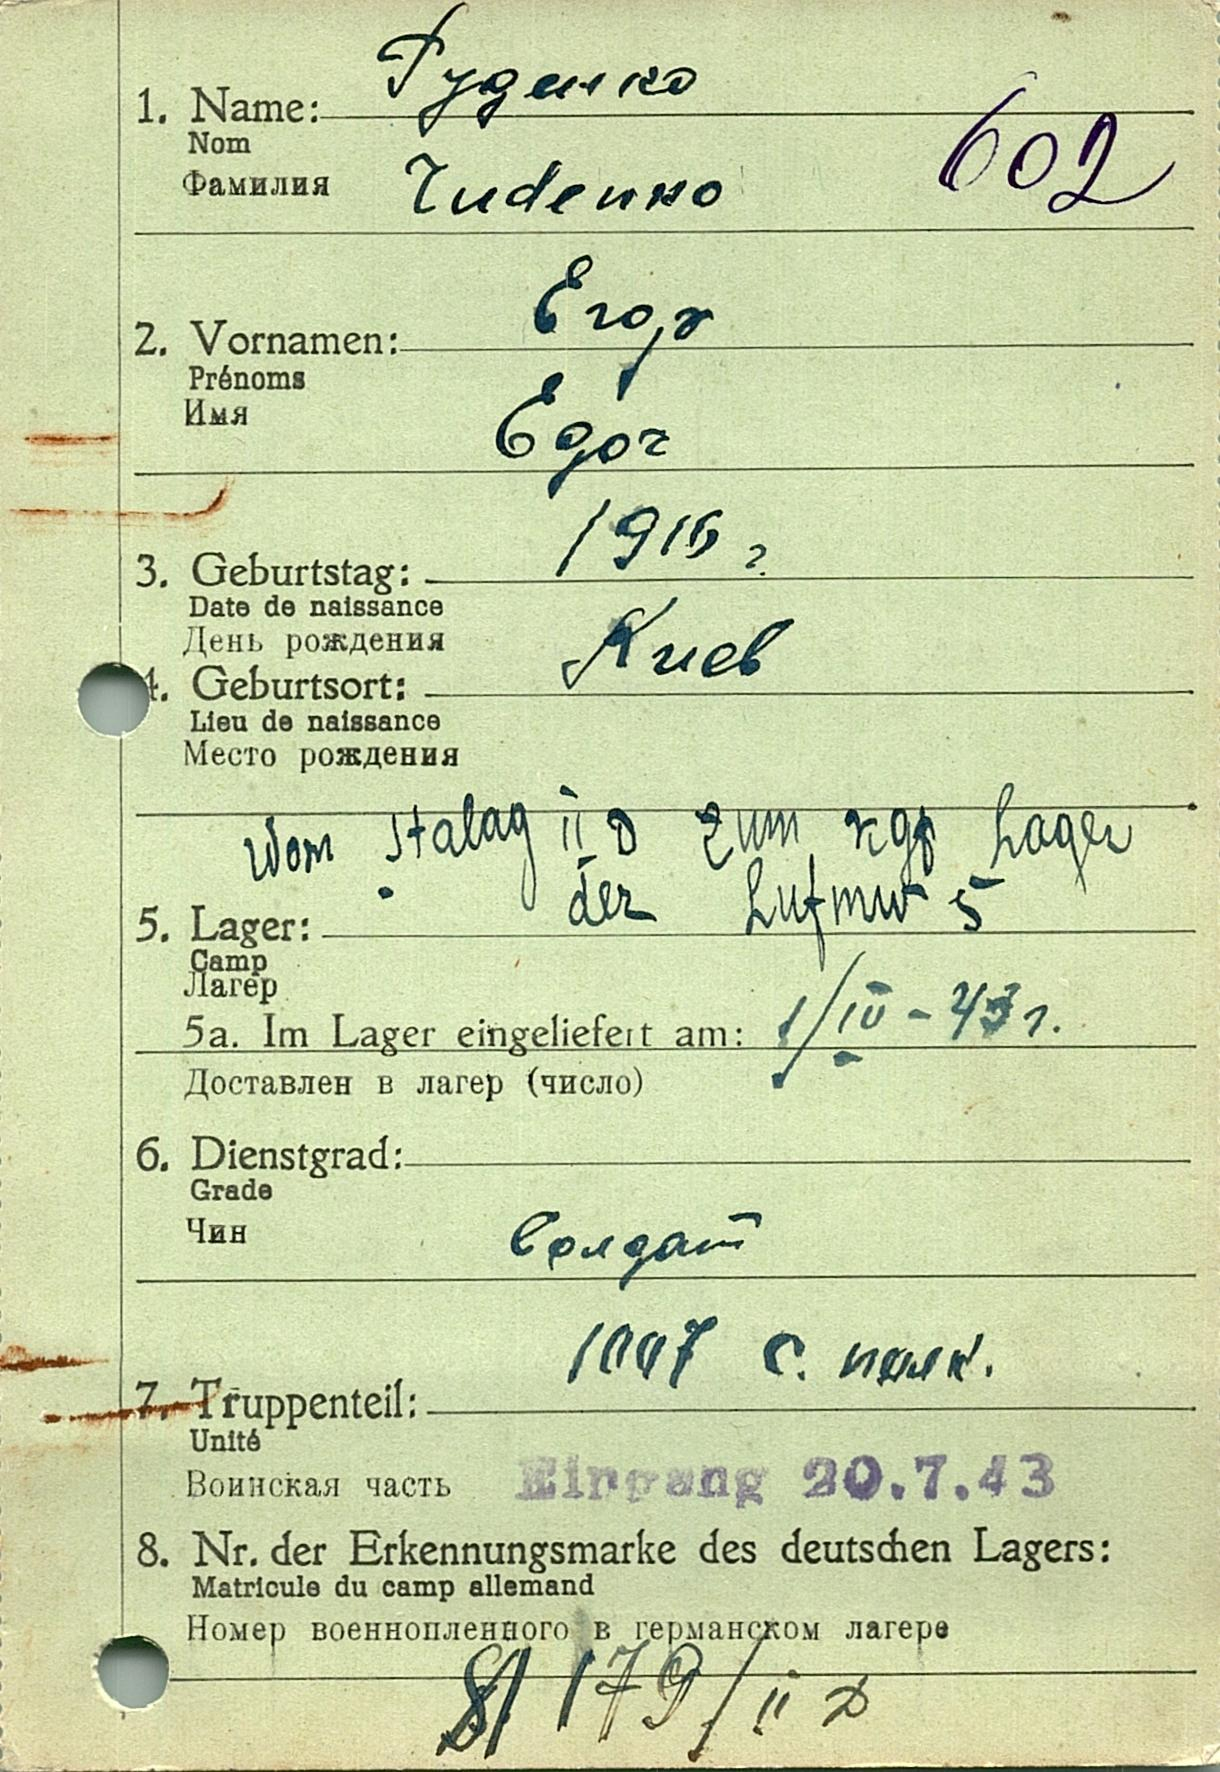 1. Name: Руденко
Nom
Фамилия Rudenко
602
2. Vornamen: Егор
Prénoms
Имя Egor
3. Geburtstag: 1916 г.
Date de naissance
День рождения
4. Geburtsort: Киев
Lieu de naissance
Место рождения
Vom Stalag II D zum kgf Lager
der Luft 5
5. Lager:
Camp
Лагер
5a. Im Lager eingeliefert am: 1/IV - 43 г.
Доставлен в лагер (число)
6. Dienstgrad:
Grade
Чин Солдат
1007 с. полк.
7. Truppenteil:
Unité
Воинская часть Eingang 20.7.43
8. Nr. der Erkennungsmarke des deutschen Lagers:
Matricule du camp allemand
Номер военнопленного в германском лагере
179/II D